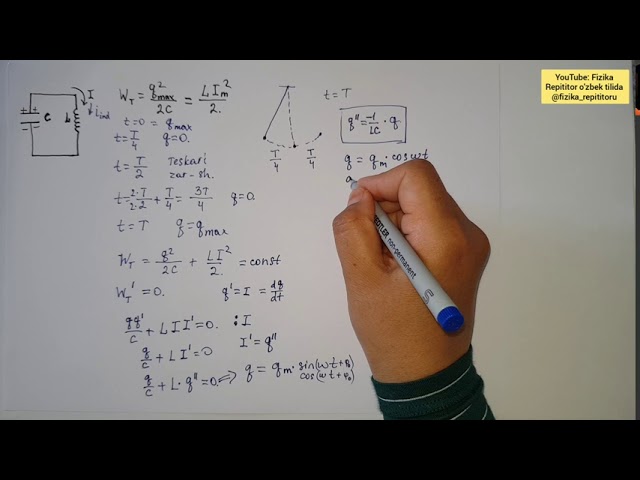 YouTube: Fizika
Repititor o'zbek tilida
@fizika_repititoru
I
i ind
+ +
C
L
W_T = q²max/2C = LI_m²/2.
t=0 = q max
t = T/4 q=0.
t = T/2 Teskari
zar-sh.
t = 2·T/2·2 + T/4 = 3T/4 q=0.
t = T q = q max
W_T = q²/2C + LI²/2 = const
W_T' = 0. q' = I = dq/dt
qq'/C + LII' = 0. : I
q/C + LI' = 0 I' = q''
q/C + L·q'' = 0. => q = q_m · sin(ωt+φ₀)
cos(ωt+φ₀)
T/4 T/4
t = T
q'' = -1/LC · q
q = q_m · cos ωt
q
STAEDTLER non-permanent
S